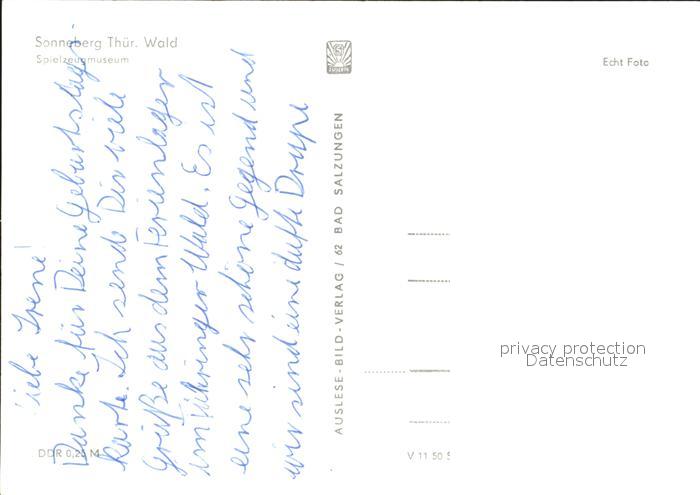 Sonneberg Thür. Wald
Spielzeugmuseum
Echt Foto
Liebe Irene!
Danke für Deine Geburtstags-
karte. Ich sende Dir viele
Grüße aus dem Ferienlager
im Thüringer Wald. Es ist
eine sehr schöne Gegend und
wir sind eine dufte Truppe
AUSLESE-BILD-VERLAG / 62 BAD SALZUNGEN
privacy protection
Datenschutz
DDR 0,25 M
V 11 50 S